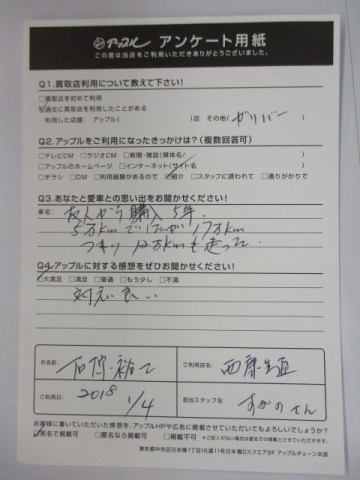 アップル アンケート用紙
この度は当店をご利用いただきありがとうございました。
Q1.買取店利用について教えて下さい!
□買取店を初めて利用
☑過去に買取店を利用したことがある
利用した店舗: アップル( )店 その他(ガリバー
Q2.アップルをご利用になったきっかけは?(複数回答可)
□テレビCM □ラジオCM □新聞・雑誌(媒体名/ )
□アップルのホームページ □インターネット(サイト名 )
□チラシ □DM □利用経験があるので ☑紹介 □スタッフに誘われて □通りがかりで
Q3.あなたと愛車との思い出をお聞かせください!
車名:
友人から購入 5年.
5万kmでしたが 17万km
つまり 12万kmも走った.
Q4.アップルに対する感想をぜひお聞かせください!
☑大満足 □満足 □普通 □もう少し □不満
対応良い
お名前:
ご利用店名:
ご利用日:
2018 1/4
担当スタッフ名:
すがのさん
お客様に書いていただいた感想を、アップルHPや広告に掲載させていただいてもよろしいでしょうか?
☑実名で掲載可 □匿名なら掲載可 □掲載不可 ※ご記入がない場合は匿名での掲載とさせていただきます。
東京都中央区日本橋1丁目16番11号日本橋Dスクエア8F アップルチェーン本部